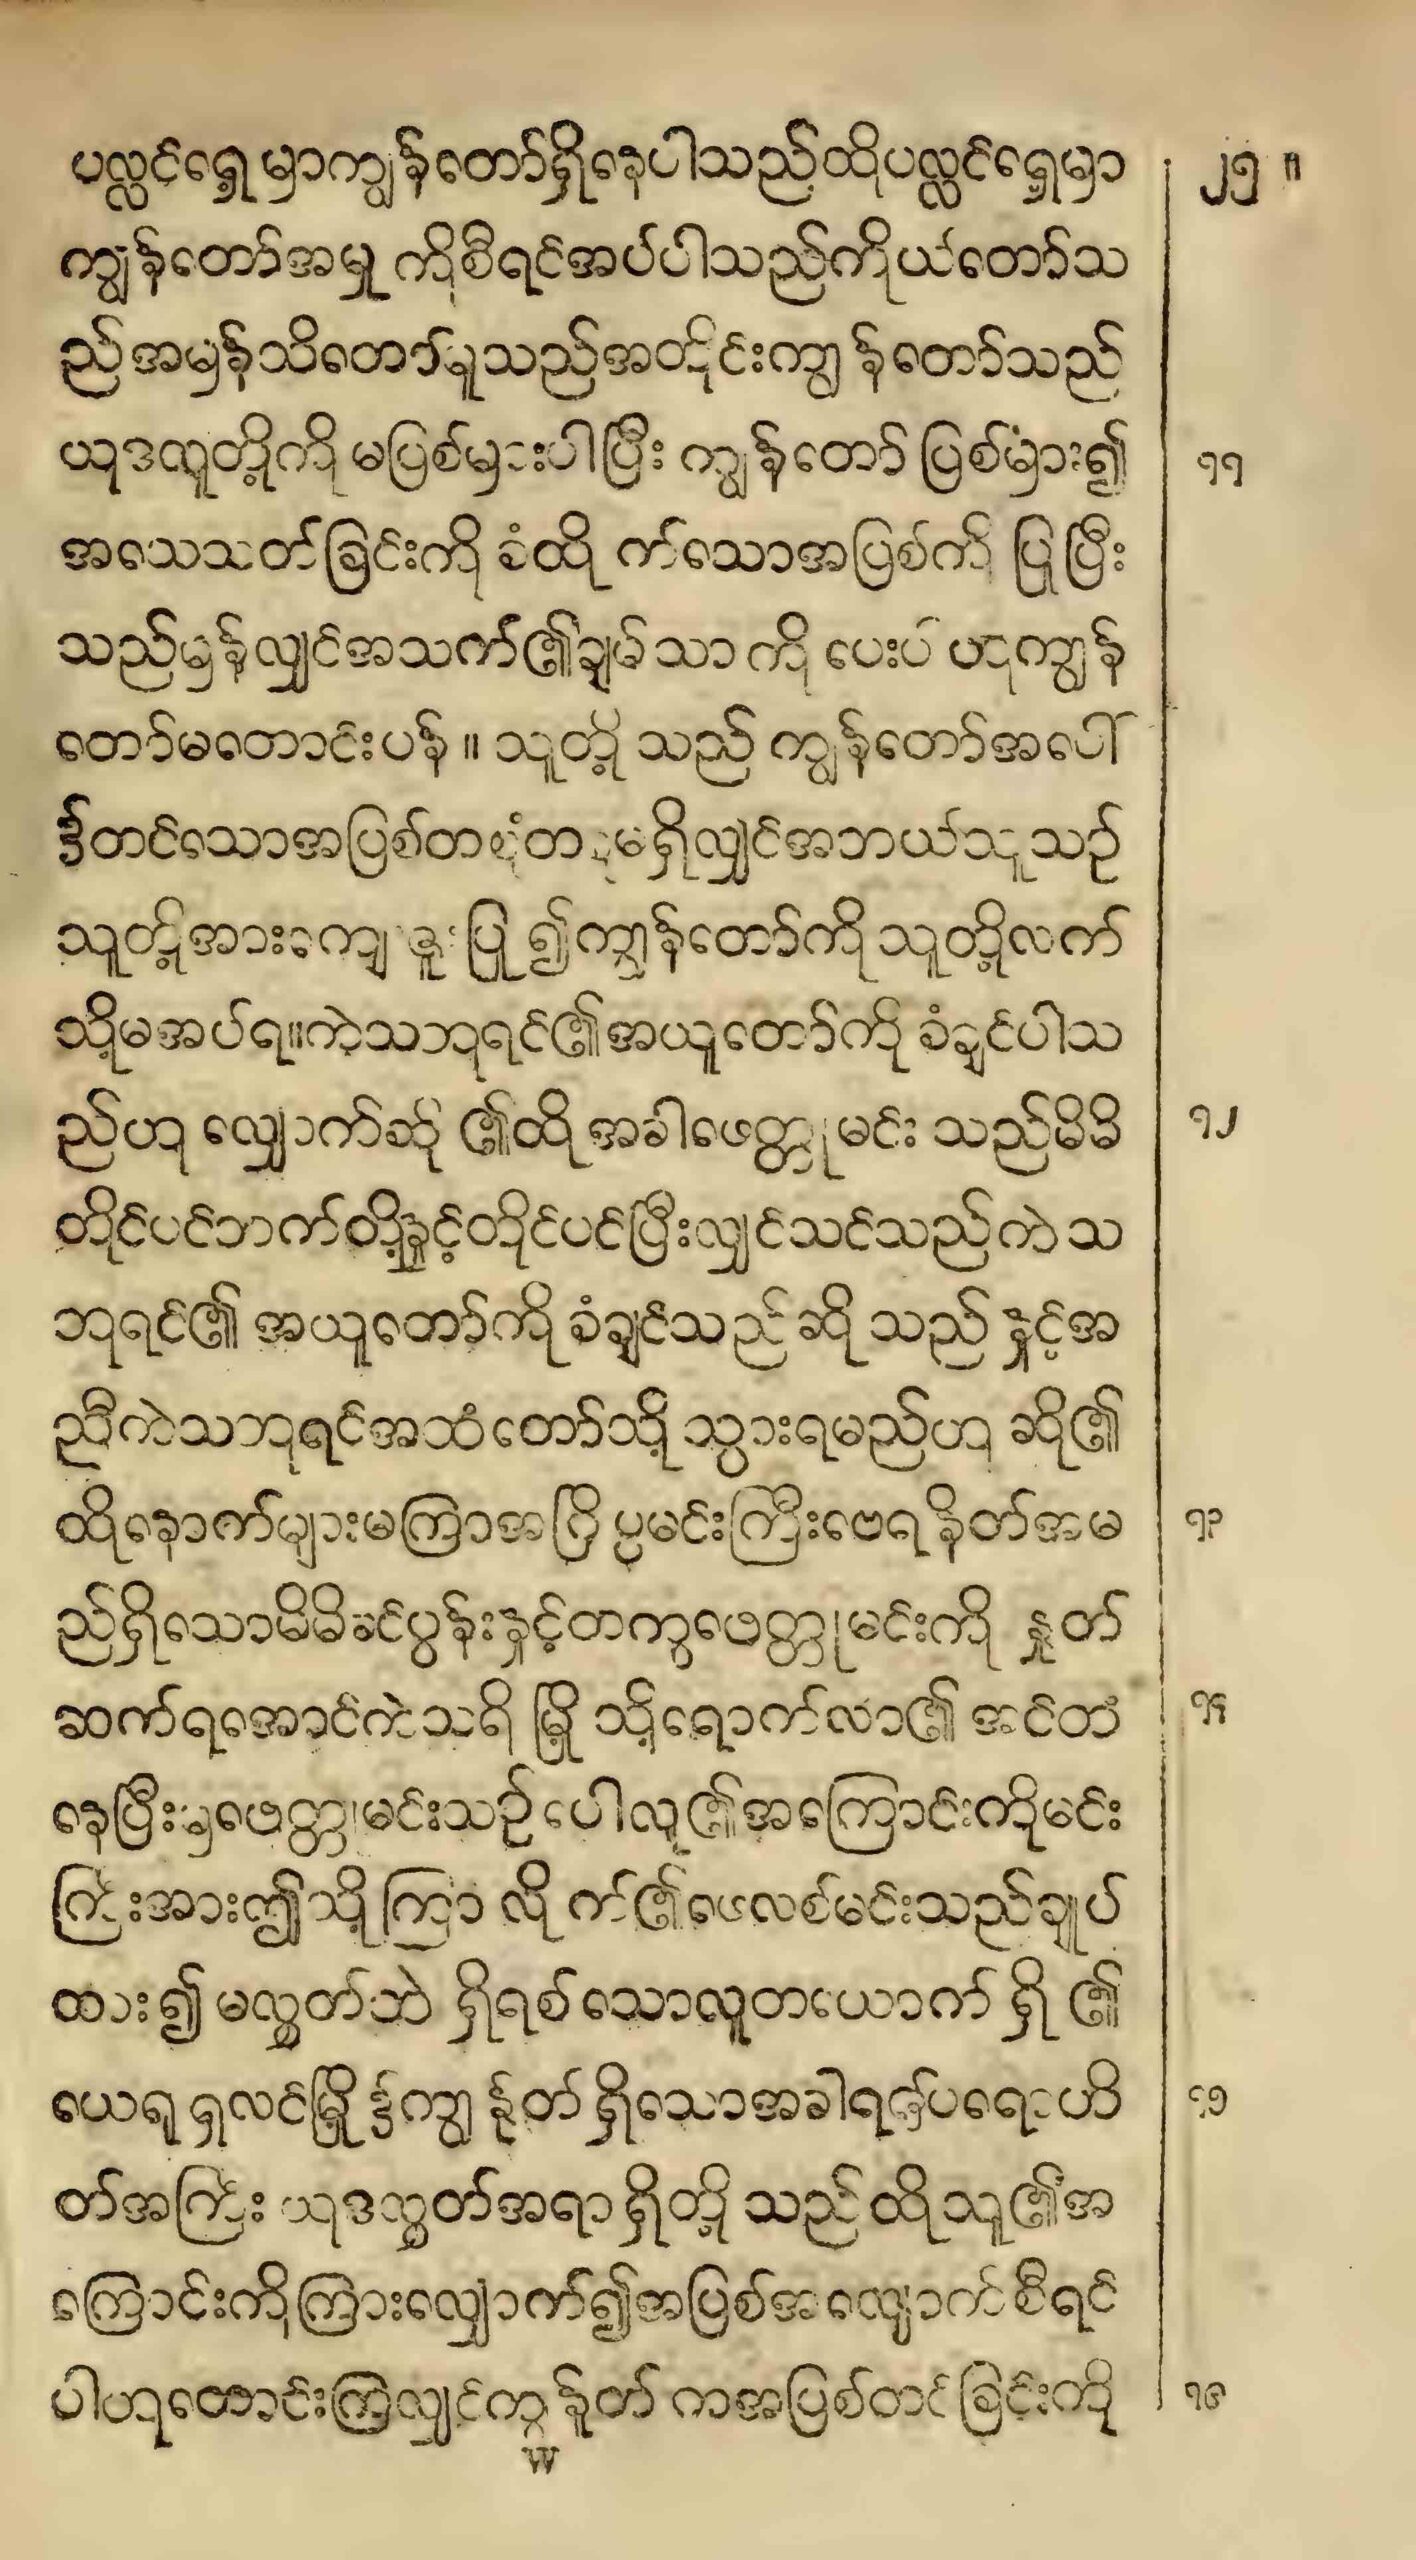 ပလ္လင်ရှေ့မှာကျွန်တော်ရှိနေပါသည်ထိုပလ္လင်ရှေ့မှာ ၂၅ ။
ကျွန်တော်အမှု ကိုစီရင်အပ်ပါသည်ကိုယ်တော်သ
ည်အမှန်သိတော်မူသည်အတိုင်းကျွန်တော်သည်
ယုဒလူတို့ကို မပြစ်မှားပါပြီး ကျွန်တော် ပြစ်မှား၍ ၁၁
အသေသတ်ခြင်းကို ခံထို က်သောအပြစ်ကို ပြုပြီး
သည်မှန်လျှင်အသက်၏ချမ်သာ ကို ပေးပါ ဟုကျွန်
တော်မတောင်းပန် ။ သူတို့ သည် ကျွန်တော်အပေါ်
၌တင်သောအပြစ်တစုံတခုမရှိလျှင်အဘယ်သူသဉ်
သူတို့အားကျေးဇူးပြု ၍ကျွန်တော်ကိုသူတို့လက်
သို့မအပ်ရ။ကဲသဘုရင်၏အယူတော်ကို ခံချင်ပါသ
ည်ဟု လျှောက်ဆို ၏ထို အခါဖေတ္တုမင်း သည်မိမိ ၁၂
တိုင်ပင်ဘက်တို့နှင့်တိုင်ပင်ပြီးလျှင်သင်သည်ကဲသ
ဘုရင်၏ အယူတော်ကို ခံချင်သည်ဆို သည် နှင့်အ
ညီကဲသဘုရင်အထံတော်သို့ သွားရမည်ဟု ဆို၏
ထိုနောက်များမကြာအဂြိပ္ပမင်းကြီးဗေရနိတ်အမ ၁၃
ည်ရှိသောမိမိခင်ပွန်းနှင့်တကွဖေတ္တုမင်းကို နှုတ်
ဆက်ရအောင်ကဲသရိ မြို့ သို့ရောက်လာ၏ အင်တံ ၁၄
နေပြီးမှဖေတ္တုမင်းသဉ် ပေါလု၏အကြောင်းကိုမင်း
ကြီးအားဤသို့ ကြာ လို က်၏ဖေလစ်မင်းသည်ချုပ်
ထား၍ မလွှတ်ဘဲ ရှိရစ်သောလူတယောက် ရှိ ၏
ယေရုရှလင်မြို့၌ကျွန်ုတ် ရှိသောအခါရဟ်ပရောဟိ ၁၅
တ်အကြီး ယုဒလွှတ်အရာရှိတို့ သည်ထိုသူ၏အ
ကြောင်းကိုကြားလျှောက်၍အပြစ်အလျောက်စီရင်
ပါဟုတောင်းကြလျှင်ကျွန်ုတ် ကအပြစ်တင်ခြင်းကို ၁၆
W